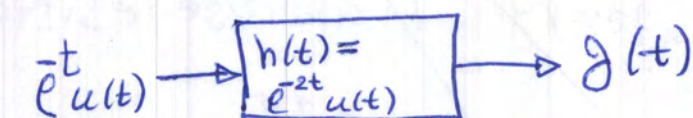 e^{-t} u(t) → h(t) = e^{-2t} u(t) → y(t)